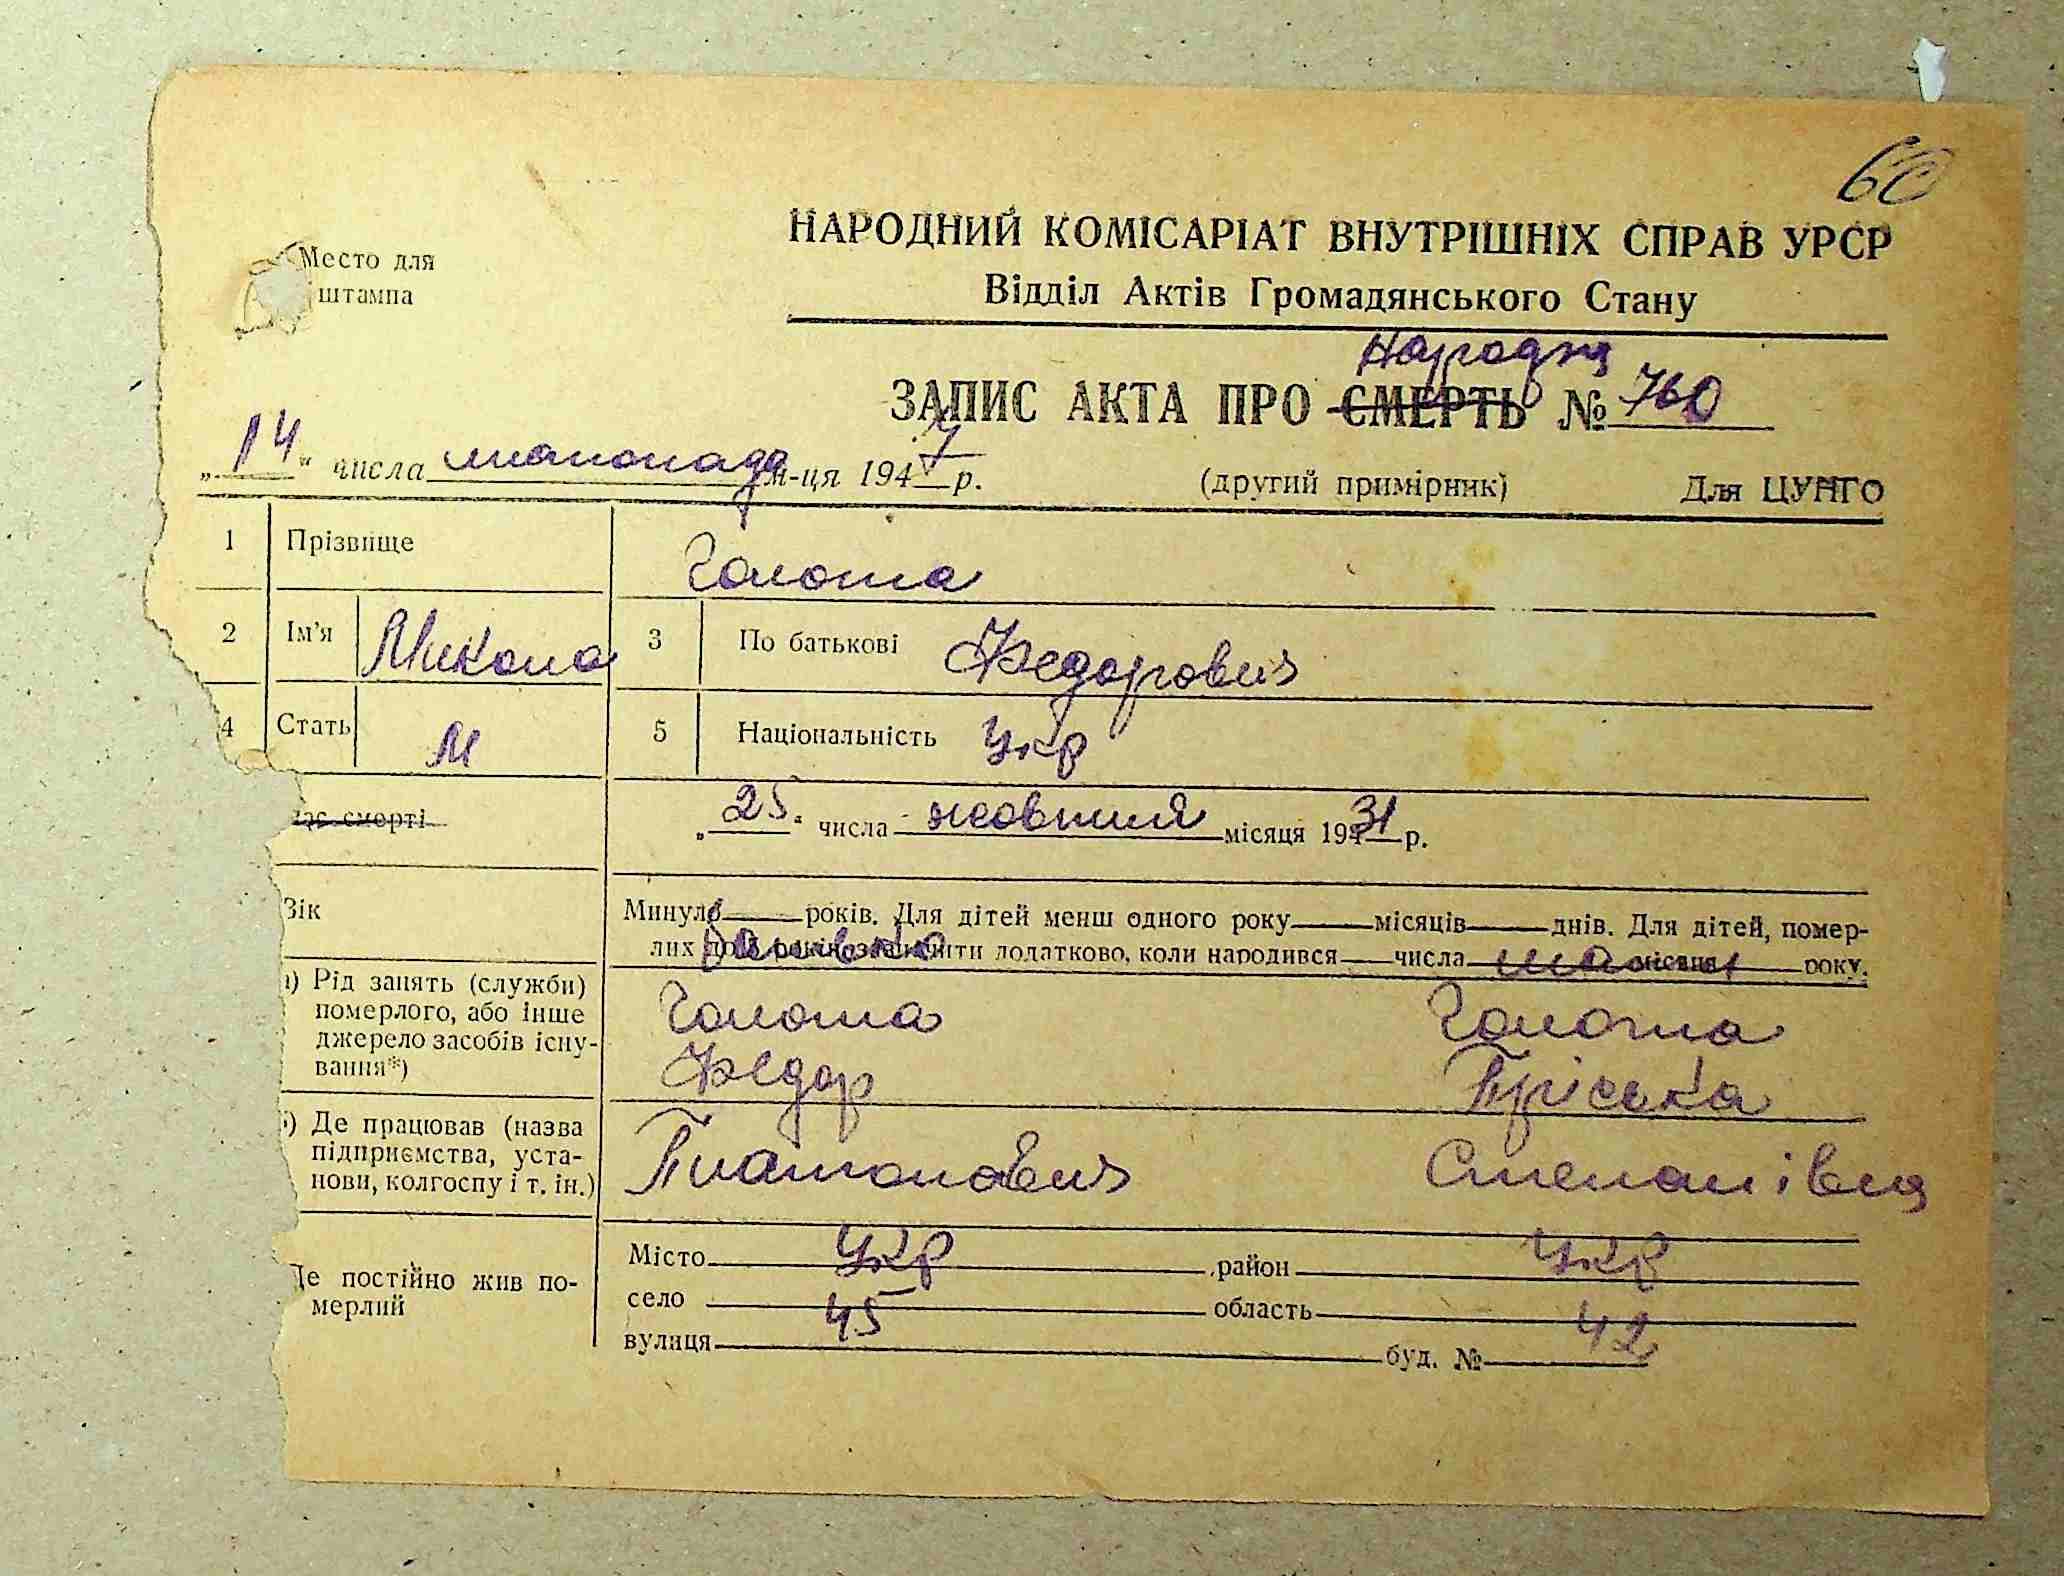 60
Место для
штампа
НАРОДНИЙ КОМІСАРІАТ ВНУТРІШНІХ СПРАВ УРСР
Відділ Актів Громадянського Стану
Народж
ЗАПИС АКТА ПРО СМЕРТЬ № 760
„14“ числа листопада м-ця 1947 р. (другий примірник) Для ЦУНГО
1 Прізвище Голота
2 Ім'я Микола 3 По батькові Федорович
4 Стать М 5 Національність Укр
час смерті „25“ числа жовтня місяця 1931 р.
Вік Минуло років. Для дітей менш одного року місяців днів. Для дітей, помер-
лих до років зазначити додатково, коли народився числа місяця року.
батько мати
) Рід занять (служби)
померлого, або інше
джерело засобів існу-
вання*)
Голота Голота
Федор Пріська
) Де працював (назва
підприємства, уста-
нови, колгоспу і т. ін.)
Платонович Степанівна
Де постійно жив по-
мерлий
Місто Укр район Укр
село 45 область 42
вулиця буд. №